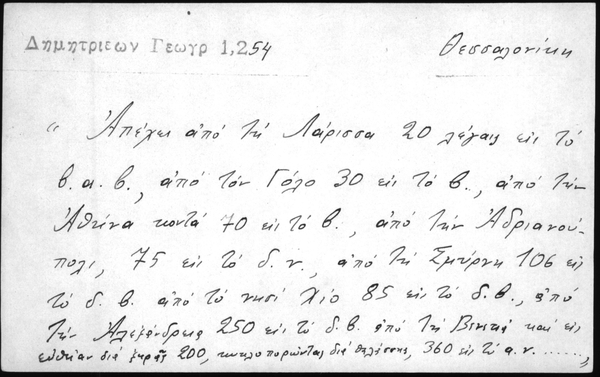 Δημητριεων Γεωγρ 1,254 Θεσσαλονίκη
“ Ἀπέχει ἀπό τή Λάρισσα 20 λέγαις εις τό
β. α. β., ἀπό τόν Γόλο 30 εις τό β., ἀπό τήν
Ἀθήνα κοντά 70 εις τό β., ἀπό τήν Ἀδριανού-
πολι, 75 εις τό δ. ν., ἀπό τή Σμύρνη 106 εις
τό δ. β. ἀπό τό νησί Χίο 85 εις τό δ. β., ἀπό
τήν Ἀλεξάνδρεια 250 εις τό δ. β. ἀπό τή Βενετιά καί εις
εὐθεῖαν διά ξηρᾶς 200, διά θαλάσσης, 360 εις τό α. ν. .......,,